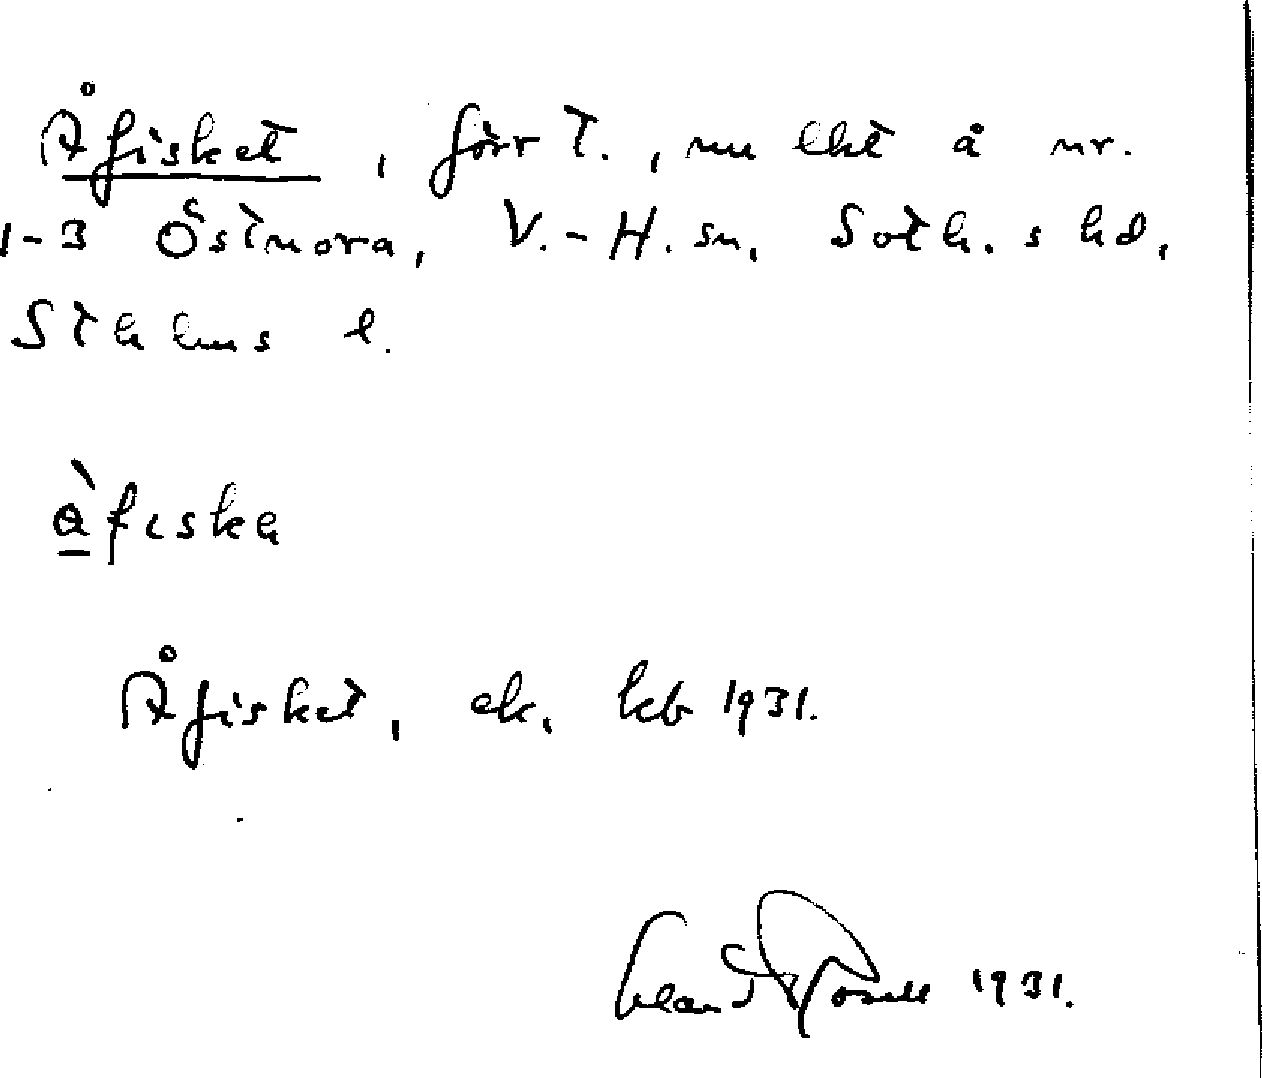 Åfisket, förr T., nu lht å nr.
1-3 Östnora, V.-H. sn, Soth. s hd,
Sthlms l.
àfiska
Åfisket, ek. kb 1931.
1931.